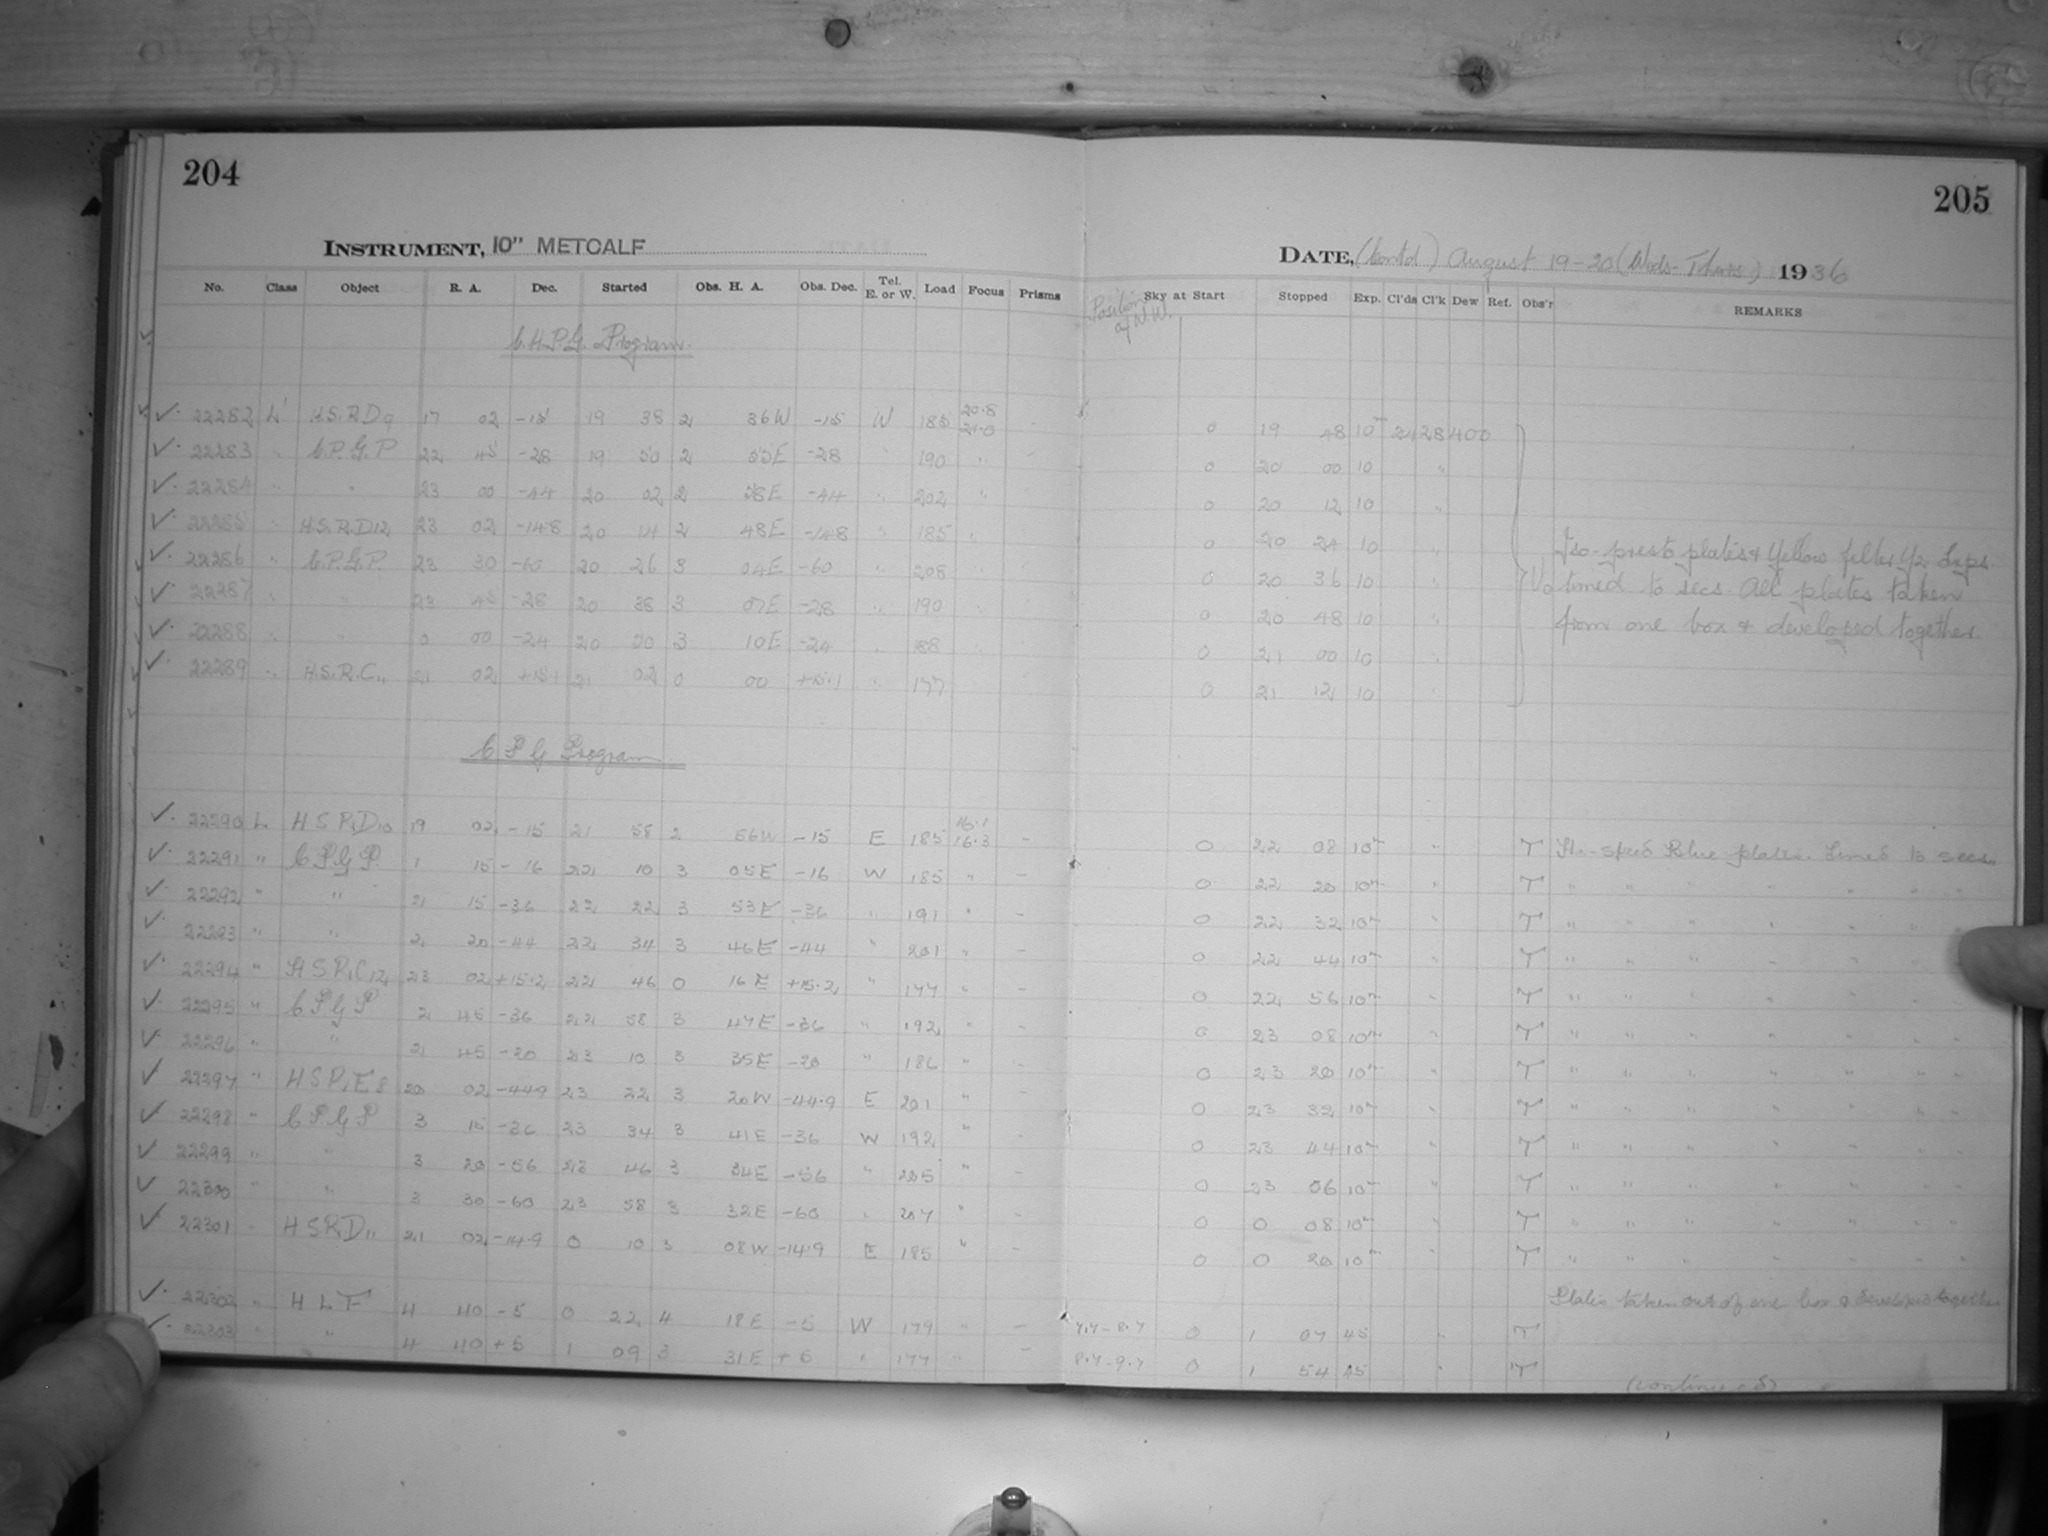 204
205
INSTRUMENT, 10" METCALF
DATE, (Contd) August 19-20 (Weds-Thurs) 1936
No. Class Object R. A. Dec. Started Obs. H. A. Obs. Dec. Tel. E. or W. Load Focus Prisms
Position of W.W. Sky at Start Stopped Exp. Cl'ds Cl'k Dew Ref. Obs'r REMARKS
Program.
22282 L' H.S.R.D9 17 02 -15 19 38 2 36W -15 W 185 20.8 21.0 0 19 48 10
22283 " C.P.G.P 22 45 -28 19 50 2 55E -28 " 190 " 0 20 00 10 "
22284 " " 23 00 -44 20 02 2 58E -44 " 202 " 0 20 12 10 "
22285 " H.S.R.D12 23 02 -14.8 20 14 2 48E -14.8 " 185 " 0 20 24 10 "
22286 " C.P.G.P. 23 30 -60 20 26 3 04E -60 " 208 " 0 20 36 10 "
22287 " " 23 45 -28 20 38 3 07E -28 " 190 0 20 48 10 "
22288 " " 0 00 -24 20 50 3 10E -24 " 188 0 21 00 10 "
22289 " H.S.R.C11 21 02 +15.1 21 02 0 00 +15.1 " 177 0 21 12 10 "
Iso-presto plates & Yellow filter
timed to secs. All plates taken
from one box & developed together.
C P G Program
22290 L H S R D10 19 02 -15 21 58 2 56W -15 E 185 16.1 16.3 - 0 22 08 10m " T plates. timed to secs.
22291 " C P G P. 1 15 -16 22 10 3 05E -16 W 185 " - 0 22 20 10m " T " " " " " " "
22292 " " 2 15 -36 22 22 3 53E -36 " 191 " - 0 22 32 10m " T " " " " " " "
22293 " " 2 20 -44 22 34 3 46E -44 " 201 " - 0 22 44 10m " T " " " " " " "
22294 " H S R C12 23 02 +15.2 22 46 0 16E +15.2 " 177 " - 0 22 56 10m " T " " " " " " "
22295 " C P G P 2 45 -36 22 58 3 47E -36 " 192 " - 0 23 08 10m " T " " " " " " "
22296 " " 2 45 -20 23 10 3 35E -20 " 186 " - 0 23 20 10m " T " " " " " " "
22297 " H S R E8 20 02 -44.9 23 22 3 20W -44.9 E 201 " - 0 23 32 10m " T " " " " " " "
22298 " C P G P 3 15 -36 23 34 3 41E -36 W 192 " - 0 23 44 10m " T " " " " " " "
22299 " " 3 20 -56 23 46 3 34E -56 " 205 " - 0 23 56 10m " T " " " " " " "
22300 " " 3 30 -60 23 58 3 32E -60 " 207 " - 0 0 08 10m " T " " " " " " "
22301 " H S R D11 21 02 -14.9 0 10 3 08W -14.9 E 185 " - 0 0 20 10m " T " " " " " " "
Plates taken out of one box & developed together
22302 " H L T 4 40 -5 0 22 4 18E -5 W 179 " - 7.7-8.7 0 1 07 45 " T
22303 " " 4 40 +5 1 09 3 31E +5 " 177 " - 8.7-9.7 0 1 54 45 " T
(continued)